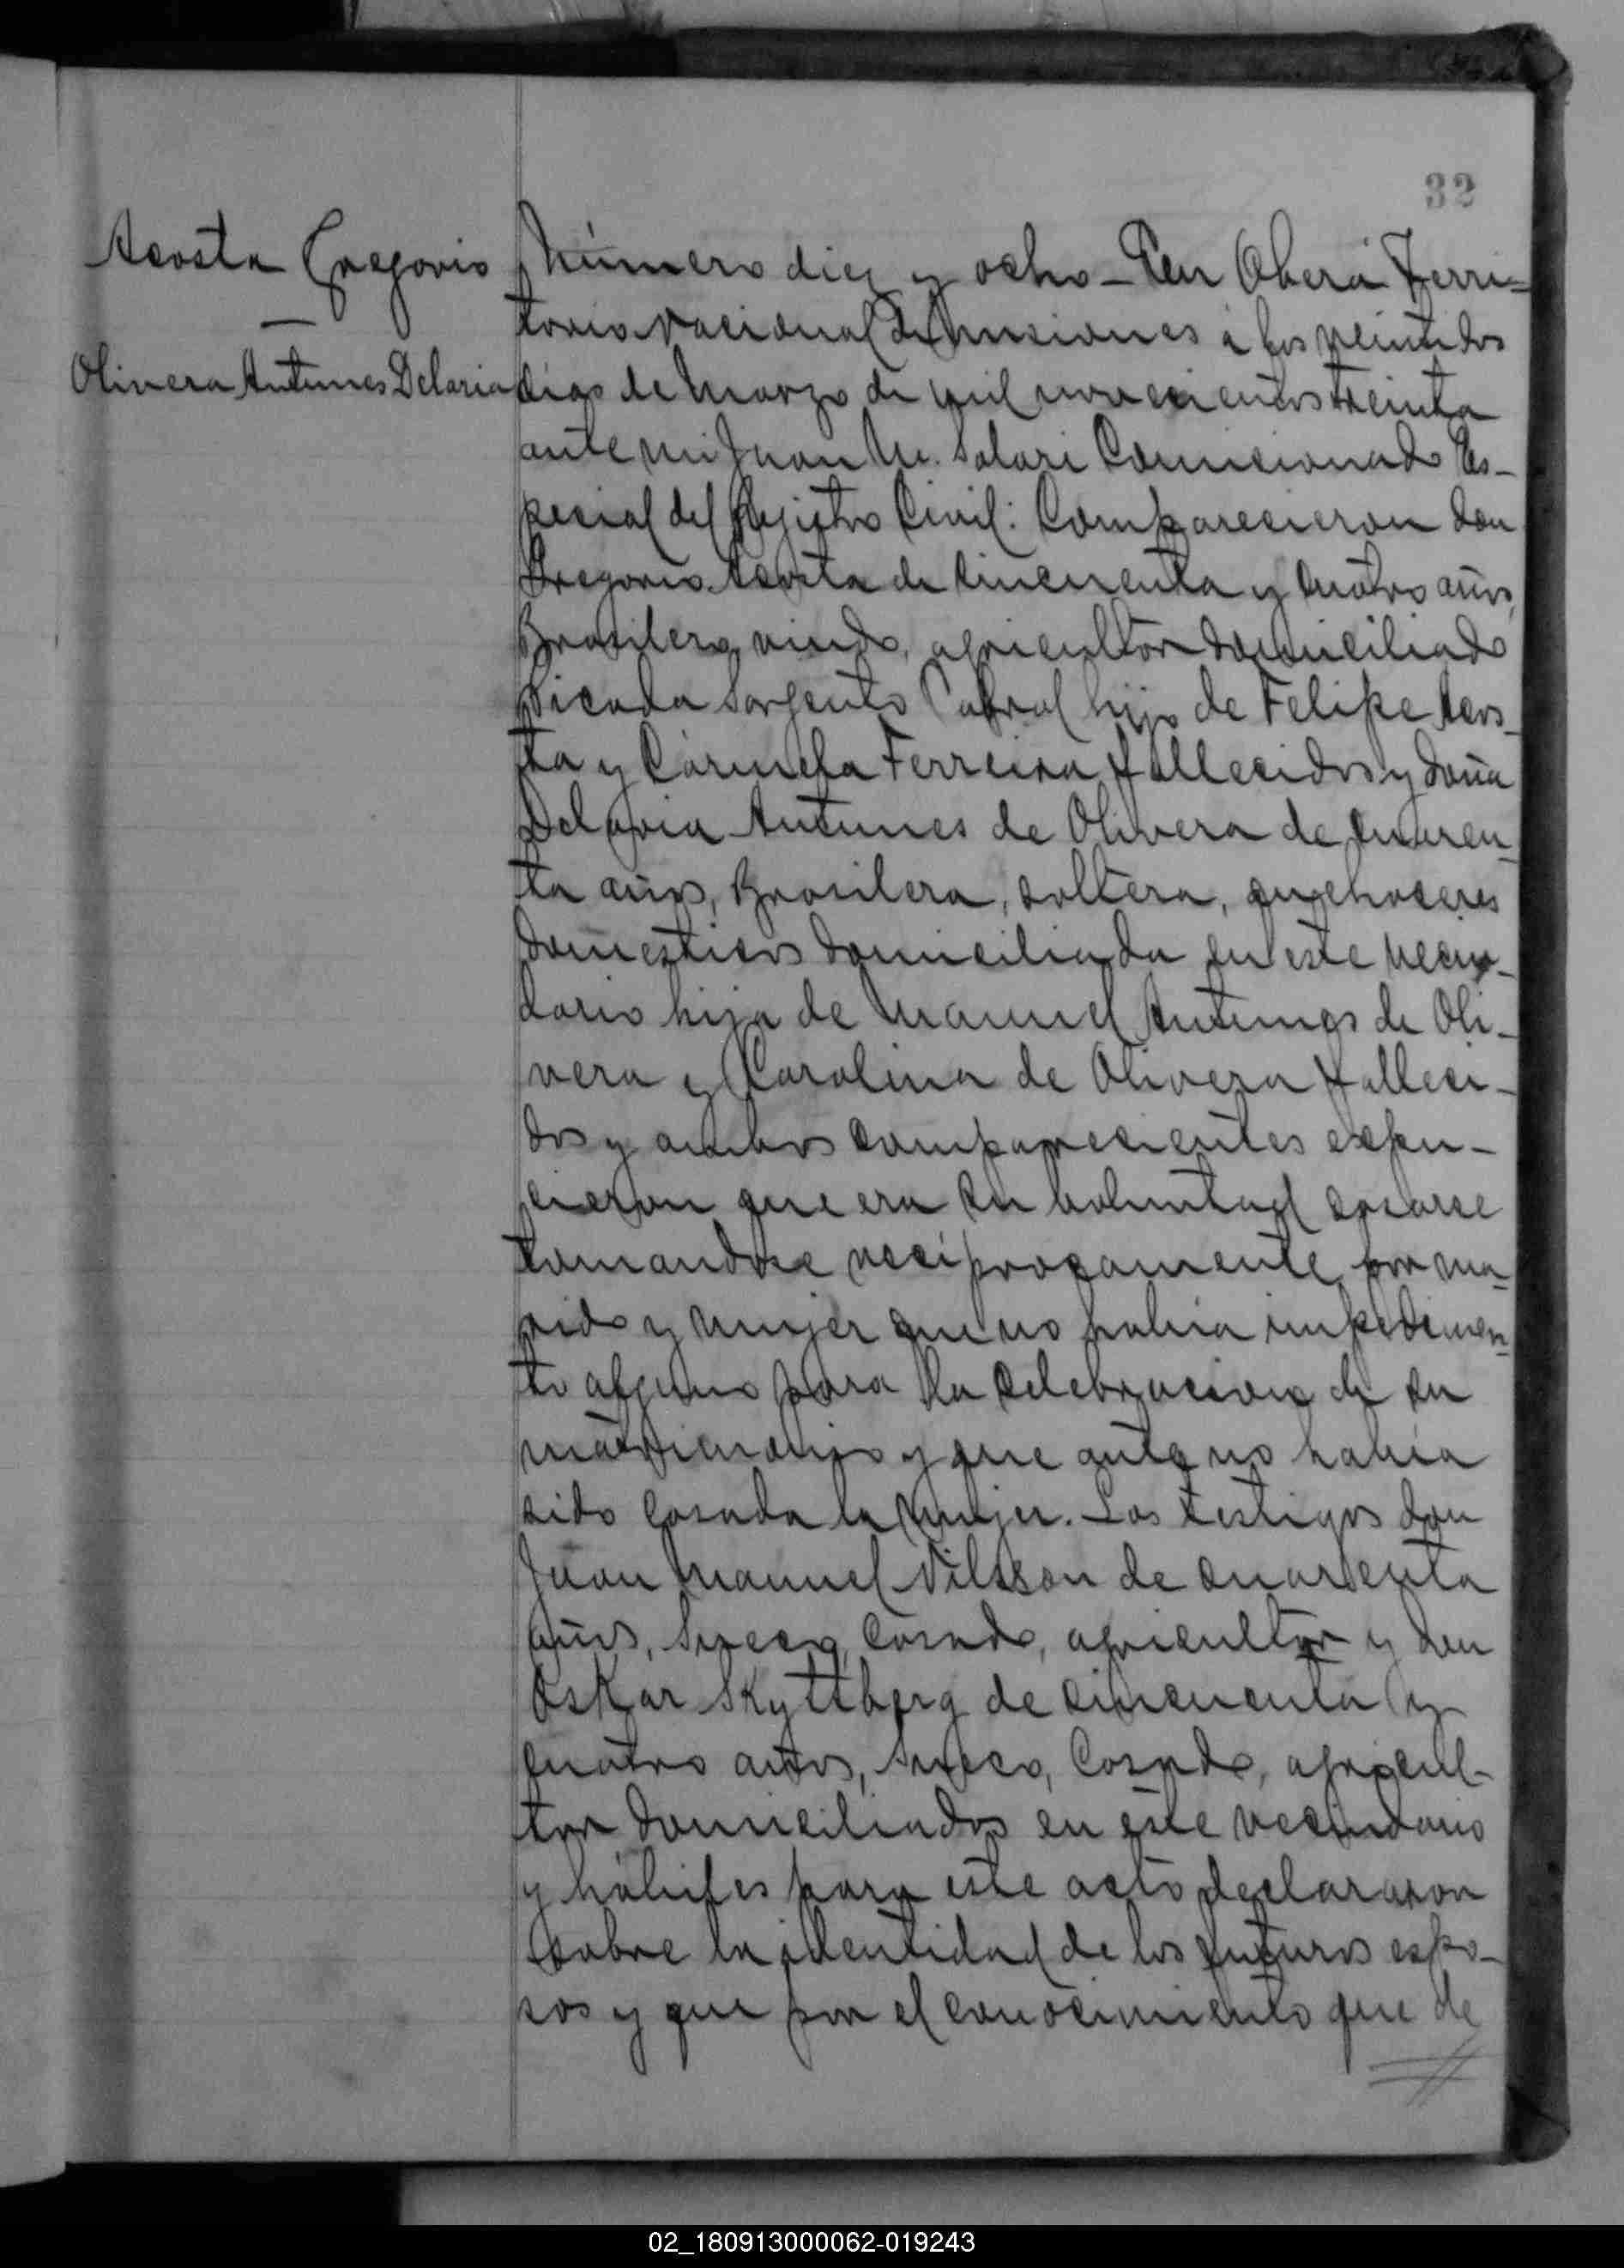 32
Acosta Gregorio
—
Olivera Antunes Delaria
Número diez y ocho - En Oberá Terri=
torio Nacional de Misiones á los veintidos
dias de Marzo de mil novecientos treinta
ante mi Juan M. Solari Comicionado Es-
pecial del Rejistro Civil: Comparecieron don
Gregorio Acosta de cincuenta y cuatro años,
Brasilero, viudo, agricultor domiciliado
Picada Sargento Cabral hijo de Felipe Acos-
ta y Cármela Ferreira fallecidos y doña
Delaria Antunes de Olivera de cuaren-
ta años, Brasilera, soltera, quehaseres
domesticos domiciliada en este vecin-
dario hija de Manuel Antunes de Oli-
vera y Carolina de Olivera falleci-
dos y ambos comparecientes expu-
cieron que era su boluntad casarse
tomandose reciprocamente por ma-
rido y mujer que no habia impedimen-
to alguno para la celebracion de su
matrimonio y que ante no habia
sido casada la mujer. Los testigos don
Juan Manuel Nilsson de cuarenta
años, Sueco, casado, agricultor y don
Oskar Skyttberg de cincuenta y
cuatro años, Sueco, Casado, agricul-
tor domiciliados en este vecindario
y hábiles para este acto declararon
sobre la identidad de los futuros espo-
sos y que por el conocimiento que de
02_180913000062-019243